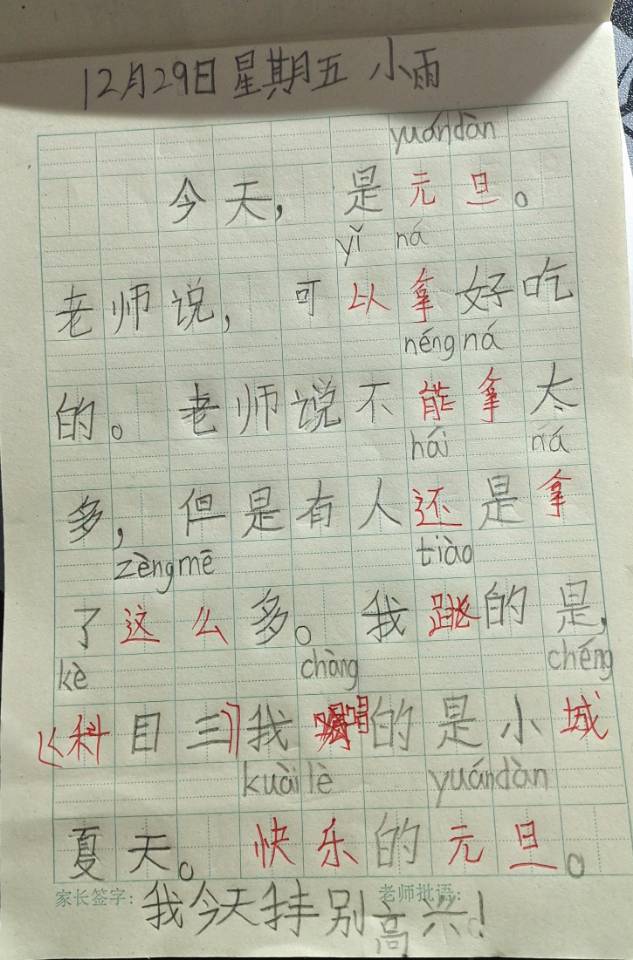 12月29日星期五 小雨
yuándàn
今天，是元旦。
yǐ ná
老师说，可以拿好吃
néng ná
的。老师说不能拿太
hái ná
多，但是有人还是拿
zèng mē tiào
了这么多。我跳的是，
kè chàng chéng
《科目三》我唱的是小城
kuài lè yuándàn
夏天。快乐的元旦。
家长签字： 老师批语：
我今天特别高兴！